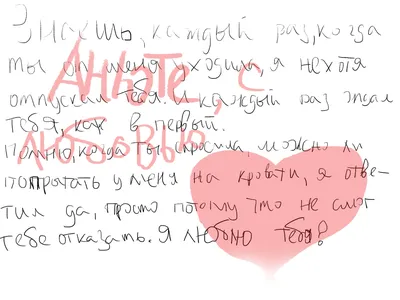 Знаешь, каждый раз, когда
ты от меня уходила, я нехотя
отпускал тебя. И каждый раз ждал
тебя, как в первый.
Помню, когда ты спросила, можно ли
попрыгать у меня на кровати, я отве-
тил да, просто потому что не смог
тебе отказать. Я люблю тебя?
Аньяте, с
любовью